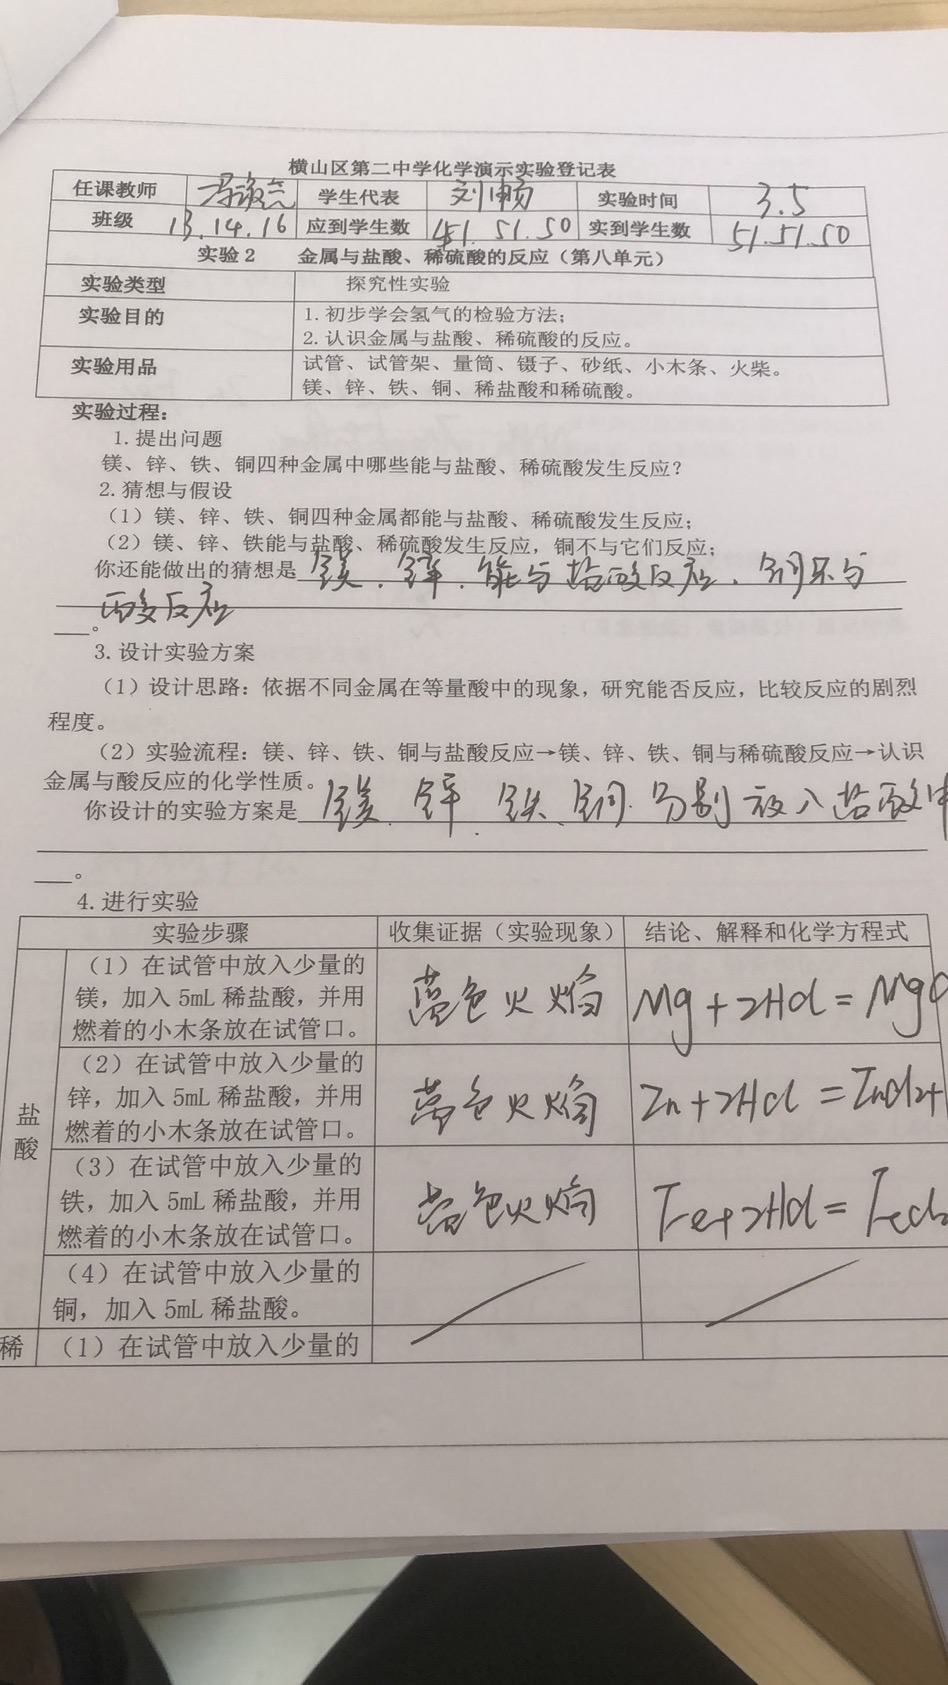 横山区第二中学化学演示实验登记表
任课教师 学生代表 刘畅 实验时间 3.5
班级 13.14.16 应到学生数 51.51.50 实到学生数 51.51.50
实验2 金属与盐酸、稀硫酸的反应（第八单元）
实验类型 探究性实验
实验目的 1.初步学会氢气的检验方法；
2.认识金属与盐酸、稀硫酸的反应。
实验用品 试管、试管架、量筒、镊子、砂纸、小木条、火柴。
镁、锌、铁、铜、稀盐酸和稀硫酸。
实验过程：
1.提出问题
镁、锌、铁、铜四种金属中哪些能与盐酸、稀硫酸发生反应？
2.猜想与假设
（1）镁、锌、铁、铜四种金属都能与盐酸、稀硫酸发生反应；
（2）镁、锌、铁能与盐酸、稀硫酸发生反应，铜不与它们反应；
你还能做出的猜想是镁、锌、能与盐酸反应、铜不与
酸反应
。
3.设计实验方案
（1）设计思路：依据不同金属在等量酸中的现象，研究能否反应，比较反应的剧烈
程度。
（2）实验流程：镁、锌、铁、铜与盐酸反应→镁、锌、铁、铜与稀硫酸反应→认识
金属与酸反应的化学性质。
你设计的实验方案是镁、锌、铁、铜.分别放入盐酸中
。
4.进行实验
实验步骤 收集证据（实验现象） 结论、解释和化学方程式
盐酸
（1）在试管中放入少量的
镁，加入5mL稀盐酸，并用
燃着的小木条放在试管口。
蓝色火焰 Mg+2HCl=MgC
（2）在试管中放入少量的
锌，加入5mL稀盐酸，并用
燃着的小木条放在试管口。
蓝色火焰 Zn+2HCl=ZnCl2+
（3）在试管中放入少量的
铁，加入5mL稀盐酸，并用
燃着的小木条放在试管口。
蓝色火焰 Fe+2HCl=FeCl2
（4）在试管中放入少量的
铜，加入5mL稀盐酸。
稀 （1）在试管中放入少量的